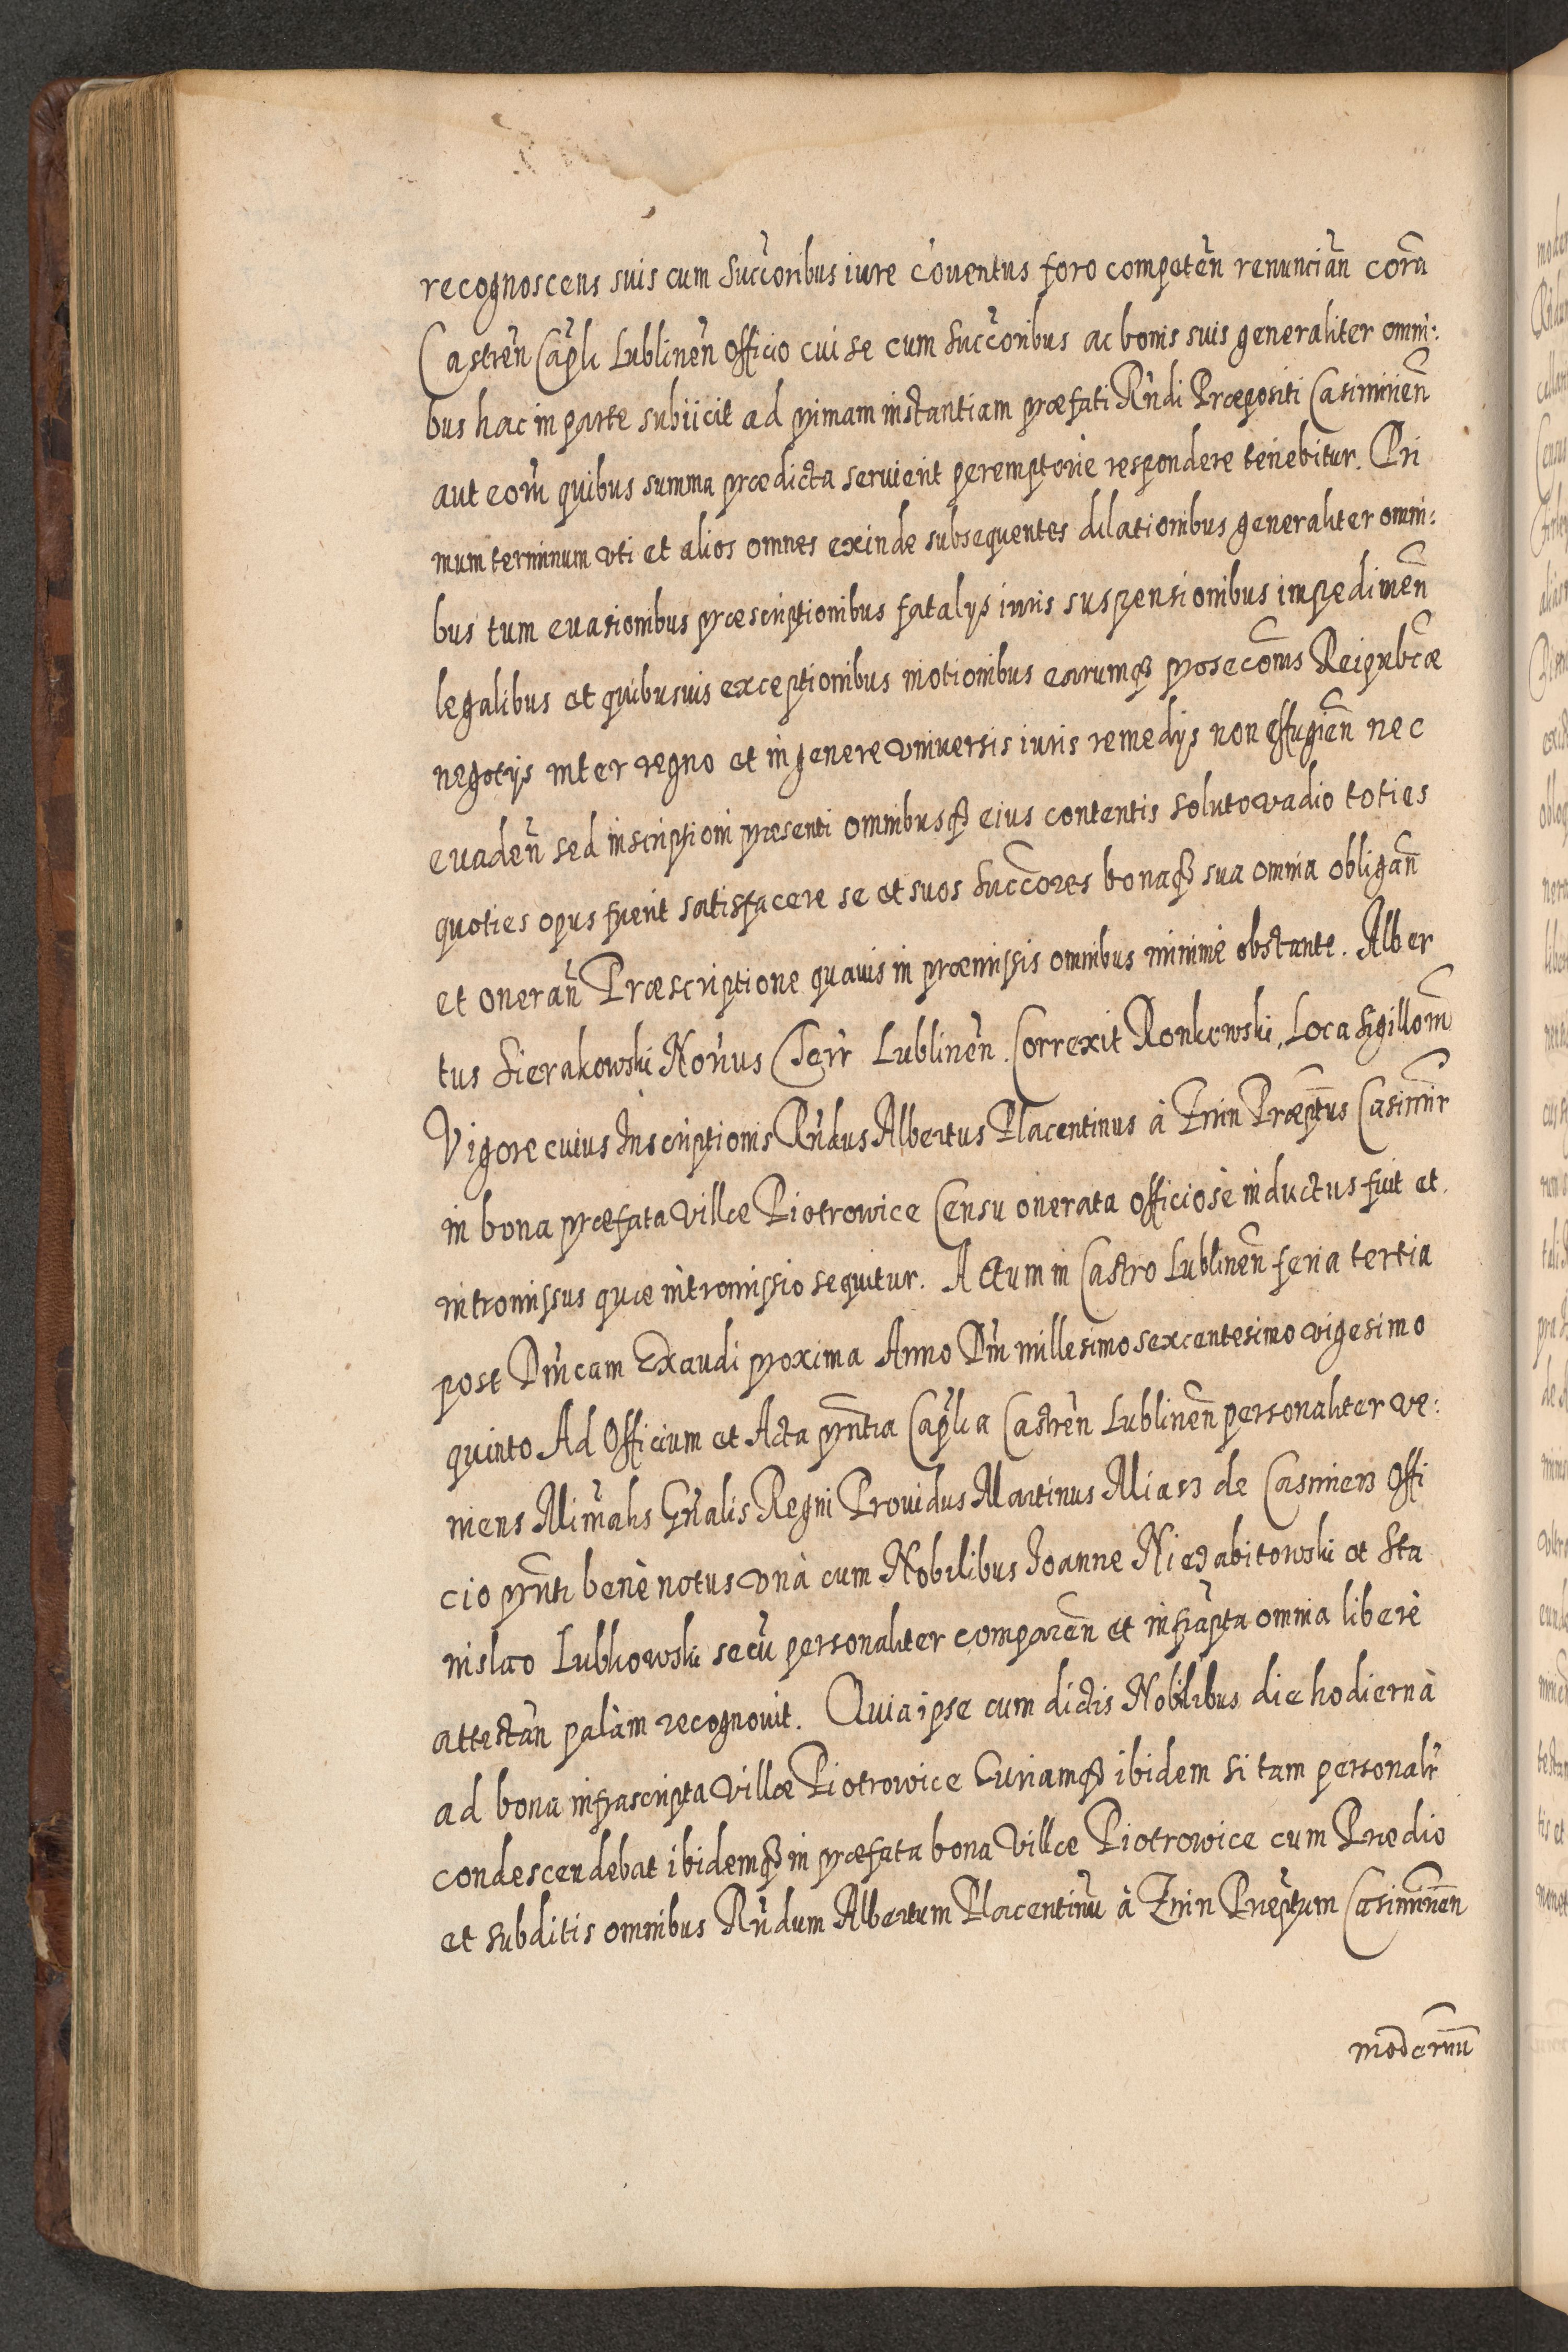 recognoscens suis cum Succ̃oribus iure c̃ouentus foro competeñ renunciañ corã
Castreñ Cap̃li Lublineñ Officio cui se cum Succ̃oribus ac bonis suis generaliter omni:
bus hac in parte subiicit ad primam instantiam præfati Rñdi Præpositi Casimirieñ
aut eor̃u quibus summa prædicta seruient peremptoriè respondere tenebitur. Pri
mum terminum vti et alios omnes exinde subsequentes dilationibus generaliter omni:
bus tum euasionibus præscriptionibus fatalys iuris suspensionibus impedimeñ
legalibus et quibusuis exceptionibus motionibus earumq₃ prosecõnis Reipubc̃æ
negotijs inter regno et in genere vniuersis iuris remedijs non effugieñ nec
euadeñ sed inscriptioni præsenti omnibusq₃ eius contentis soluto vadio toties
quoties opus fuerit satisfacere se et suos Succc̃ores bonaq₃ sua omnia obligañ
et onerañ Præscriptione quauis in præmissis omnibus minimè obstante. Alber
tus Sierakowski Nor̃ius Terr̃ Lublineñ. Correxit Ronkowski, Loca Sigillom̃
Vigore cuius Inscriptionis Rñdus Albertus Placentinus à Znin Præpt̃us Casimir̃
in bona præfata Villæ Piotrowice Censu onerata officiosè inductus fuit et
intromissus quæ intromissio sequitur. Actum in Castro Lublineñ feria tertia
post Dñicam Exaudi proxima Anno Dñi millesimo sexcentesimo vigesimo
quinto Ad Officium et Acta prñtia Cap̃lia Castreñ Lublineñ personaliter ve:
niens Miñalis Gñalis Regni Prouidus Martinus Miasz de Casimierz Offi
cio prñti benè notus vnà cum Nobilibus Joanne Niezabitowski et Sta
nislao Lubkowski secũ personaliter compareñ et infrãpta omnia liberè
attestañ palàm recognouit. Quia ipse cum dictis Nobilibus die hodiernà
ad bona infrascripta Villæ Piotrowice Curiamq₃ ibidem sitam personalr̃
condescendebat ibidemq₃ in præfata bona Villæ Piotrowice cum Prædio
et subditis omnibus Rñdum Albertum Placentinũ à Znin Præp̃tum Casimirieñ
modernũ